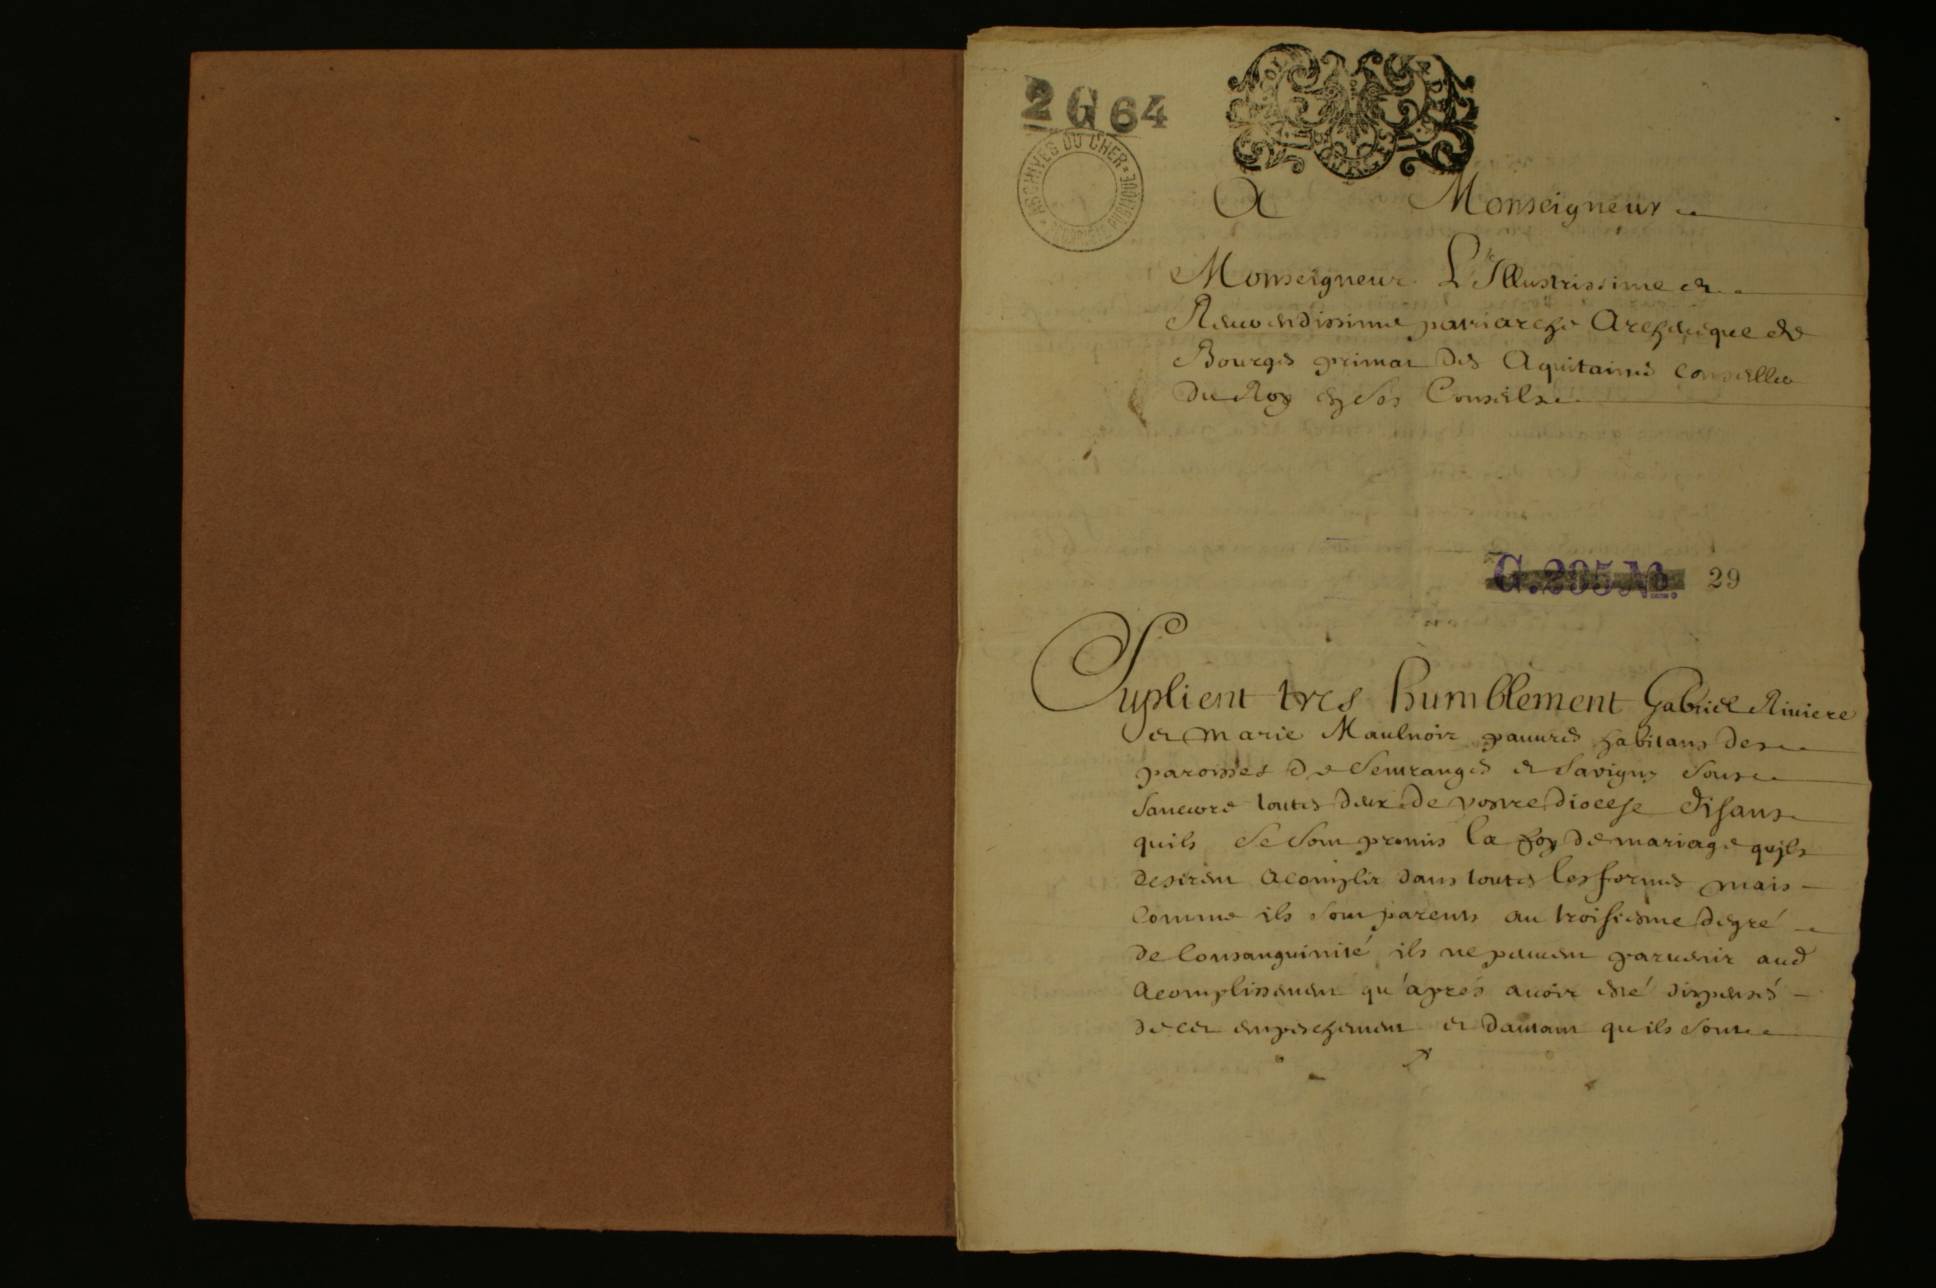 2 G 64
ARCHIVES DU CHER
PROPRIÉTÉ PUBLIQUE
A Monseigneur
Monseigneur L'Illustrissime et
Reverendissime patriarche Archevesque de
Bourges primat des Aquitaines conseiller
du Roy en ses Conseils
G. 295 No. 29
Suplient tres humblement Gabriel Riviere
et Marie Maulnoir pauvres habitans des
paroisses de Senranges et Savigny sous
Sancerre toutes deux de vostre diocese disans
quils se sont promis la foy de mariage quils
desirent acomplir dans toutes les formes mais
comme ils sont parents au troisiesme degré
de Consanguinité ils ne peuvent parvenir aud
acomplissement qu'après avoir esté dispensés
de cet empeschement et dautant quils sont